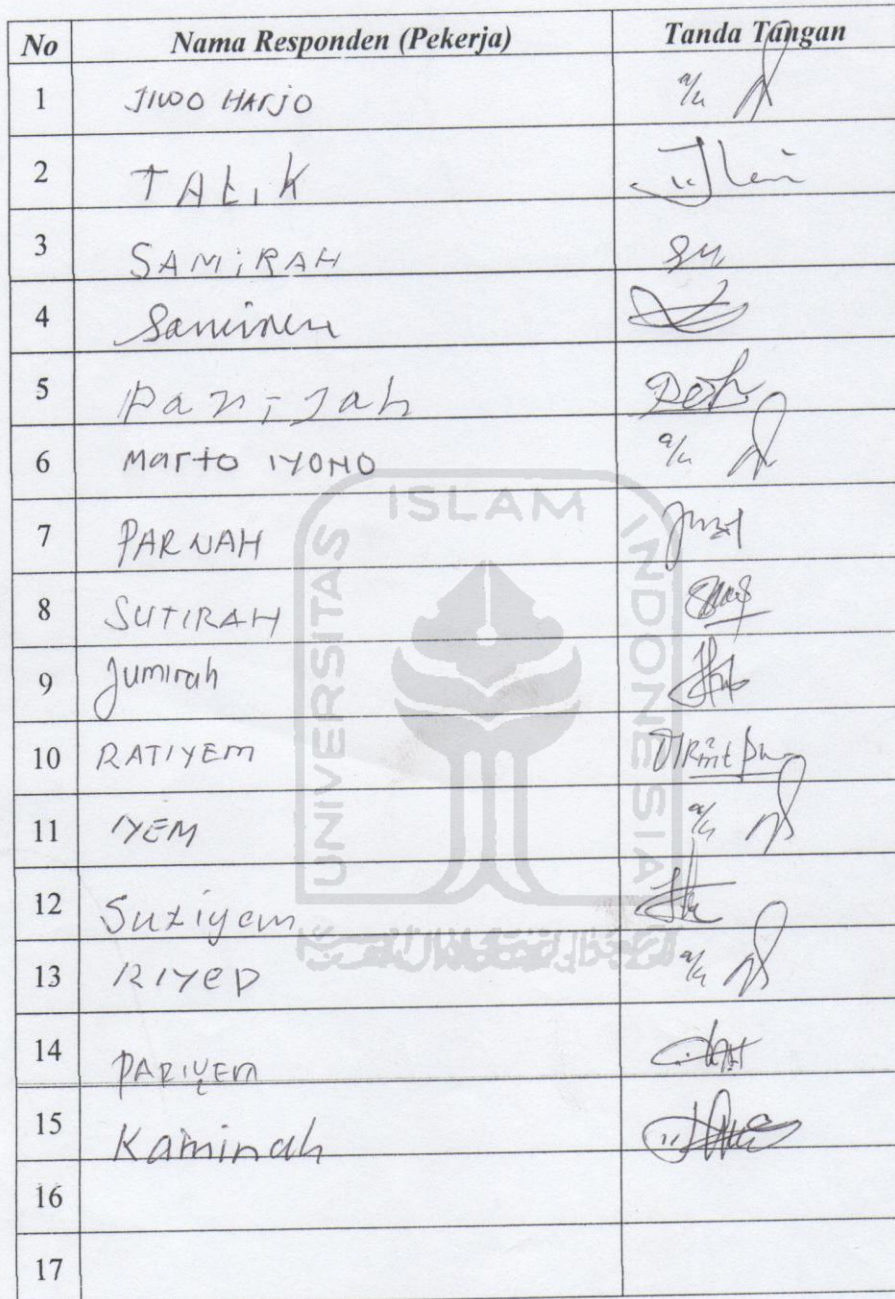 No Nama Responden (Pekerja) Tanda Tangan
1 JIWO HARJO a/n
2 TATIK
3 SAMIRAH
4 
5 Panijah
6 Marto IYONO a/n
7 PARNAH
8 SUTIRAH
9 Jumirah
10 RATIYEM
11 IYEM a/n
12 Sutiyem
13 RIYEP a/n
14 PARIYEM
15 Kaminah
16
17
UNIVERSITAS ISLAM INDONESIA